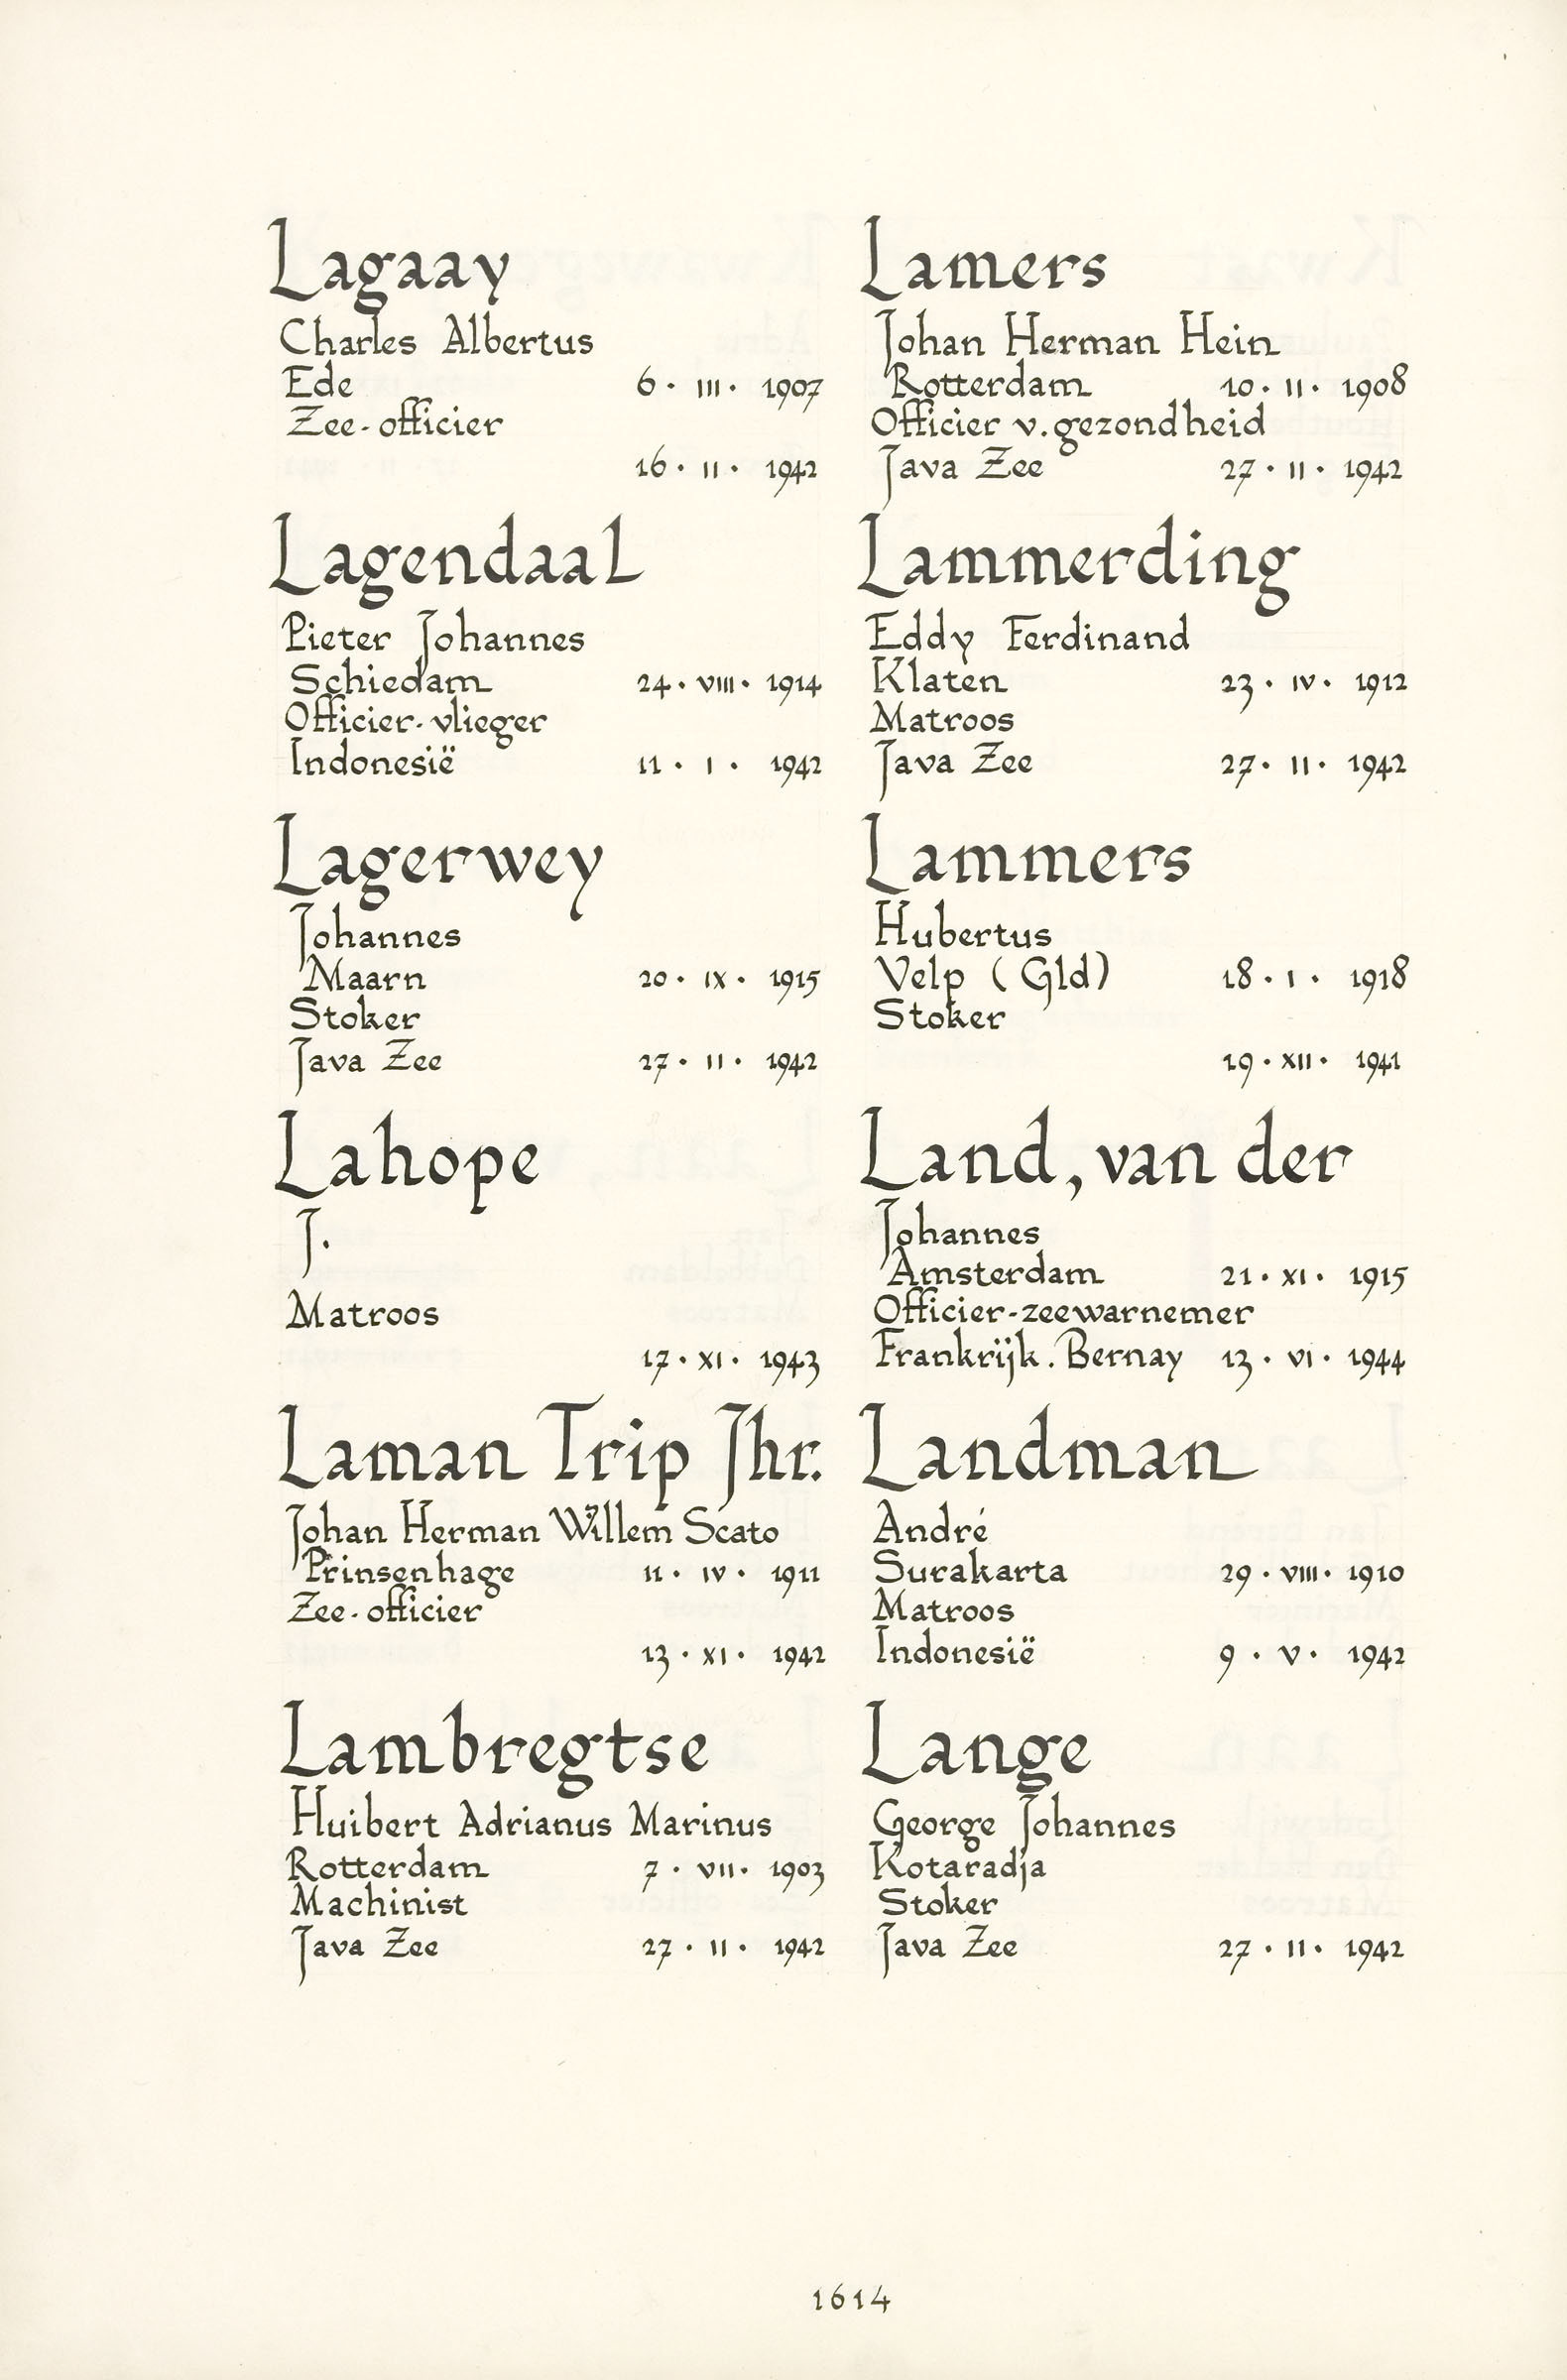 Lagaay
Charles Albertus
Ede 6 · III · 1907
Zee-officier
16 · II · 1942
Lagendaal
Pieter Johannes
Schiedam 24 · VIII · 1914
Officier-vlieger
Indonesië 11 · I · 1942
Lagerwey
Johannes
Maarn 20 · IX · 1915
Stoker
Java Zee 27 · II · 1942
Lahope
J.
Matroos
17 · XI · 1943
Laman Trip Jhr.
Johan Herman Willem Scato
Prinsenhage 11 · IV · 1911
Zee-officier
13 · XI · 1942
Lambregtse
Huibert Adrianus Marinus
Rotterdam 7 · VII · 1903
Machinist
Java Zee 27 · II · 1942
Lamers
Johan Herman Hein
Rotterdam 10 · II · 1908
Officier v. gezondheid
Java Zee 27 · II · 1942
Lammerding
Eddy Ferdinand
Klaten 23 · IV · 1912
Matroos
Java Zee 27 · II · 1942
Lammers
Hubertus
Velp (Gld) 18 · I · 1918
Stoker
19 · XII · 1941
Land, van der
Johannes
Amsterdam 21 · XI · 1915
Officier-zeewarnemer
Frankrijk. Bernay 13 · VI · 1944
Landman
André
Surakarta 29 · VIII · 1910
Matroos
Indonesië 9 · V · 1942
Lange
George Johannes
Kotaradja
Stoker
Java Zee 27 · II · 1942
1614